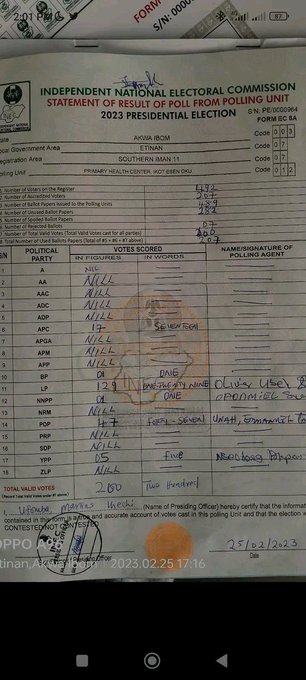 2:01 PM
87
FORM
S/N: 000
INDEPENDENT NATIONAL ELECTORAL COMMISSION
STATEMENT OF RESULT OF POLL FROM POLLING UNIT
2023 PRESIDENTIAL ELECTION
S/N: PE/0000964
FORM EC 8A
AKWA IBOM Code 0 0 3
Local Government Area ETINAN Code 0 7
Registration Area SOUTHERN IMAN 11 Code 0 7
Polling Unit PRIMARY HEALTH CENTER, IKOT EBEN OKU Code 0 1 2
1. Number of Voters on the Register 492
2. Number of Accredited Voters 207
3. Number of Ballot Papers Issued to the Polling Units
4. Number of Unused Ballot Papers
5. Number of Spoiled Ballot Papers
6. Number of Rejected Ballots 07
7. Number of Total Valid Votes (Total Valid Votes cast for all parties) 200
8. Total Number of Used Ballots Papers (Total of #5 + #6 + #7 above) 207
S/N POLITICAL PARTY VOTES SCORED NAME/SIGNATURE OF POLLING AGENT
IN FIGURES IN WORDS
1 A NIL
2 AA NILL
3 AAC NILL
4 ADC NILL
5 ADP NILL
6 APC 17 SEVENTEEN
7 APGA NILL
8 APM NILL
9 APP NILL
10 BP 01 ONE
11 LP 129 ONE-TWENTY NINE
12 NNPP 01 ONE
13 NRM NILL
14 PDP 47 FORTY-SEVEN
15 PRP NILL
16 SDP NILL
17 YPP 05 Five
18 ZLP NILL
TOTAL VALID VOTES 200 Two Hundred
(Record Total Valid Votes under #7 above)
I, (Name of Presiding Officer) hereby certify that the information
contained in this form is a true and accurate account of votes cast in this polling Unit and that the election w
CONTESTED/NOT CONTESTED
25/02/2023
Date
OPPO A96
Etinan, Akwa Ibom | 2023.02.25 17:16